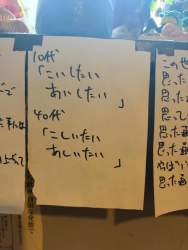 10代
「こいしたい
あいしたい
」
40代
「こしいたい
あしいたい
」
この世
思った
思った
思った
思って
思った